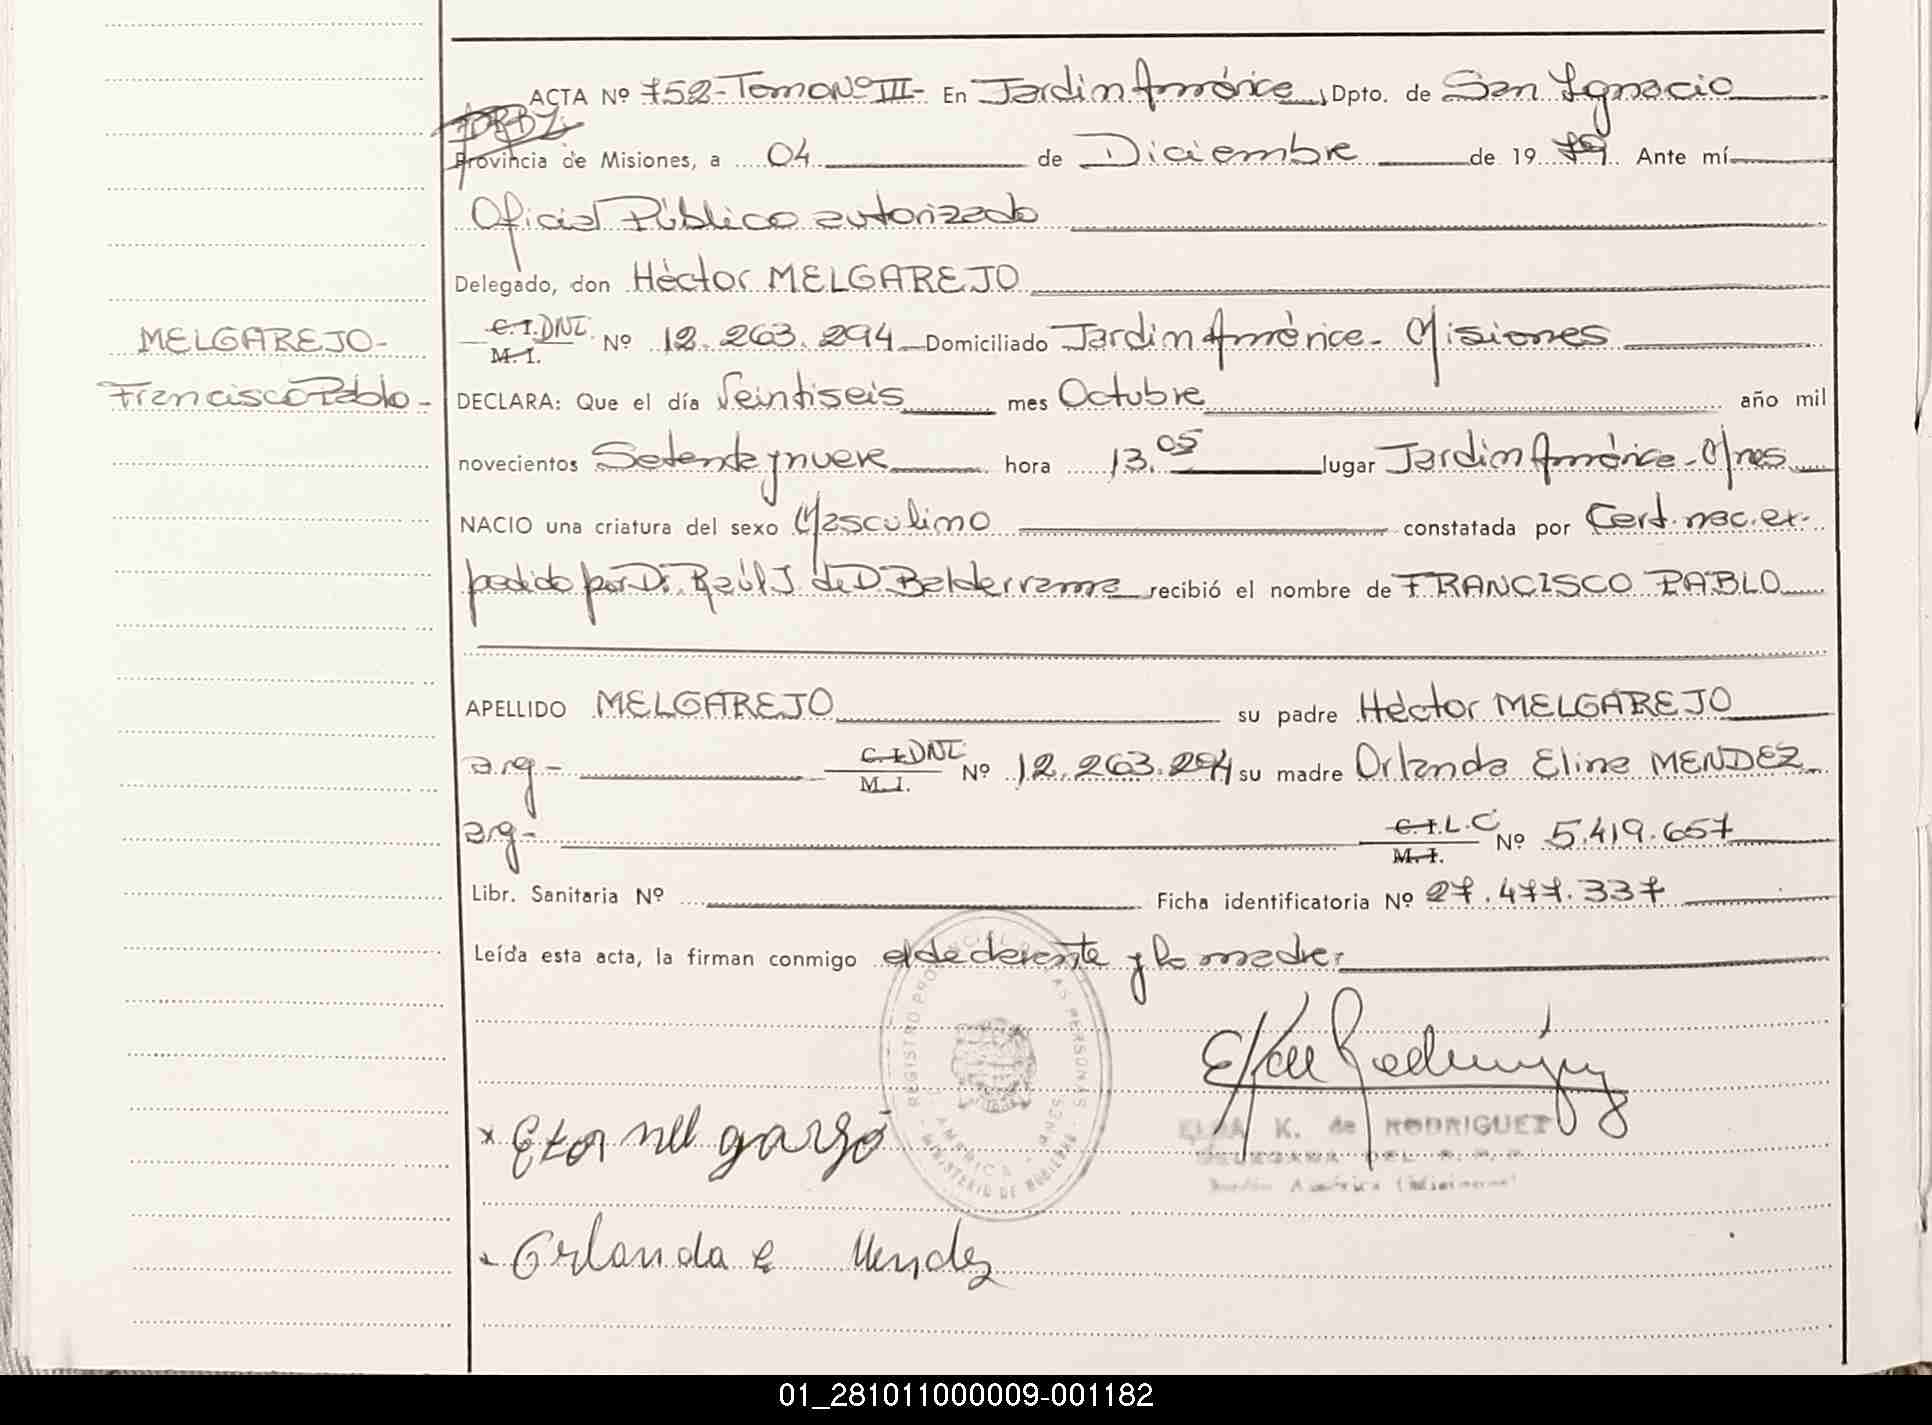 ACTA Nº 752-Tomo Nº III- En Jardin América, Dpto. de San Ignacio
Provincia de Misiones, a 04 de Diciembre de 19 79 Ante mí
Oficial Público autorizado
Delegado, don Héctor MELGAREJO
MELGAREJO-
C.I. DNI.
M.I. Nº 12.263.294 Domiciliado Jardin América- Misiones
Francisco Pablo-
DECLARA: Que el día Veintiseis mes Octubre año mil
novecientos Setenta y nueve hora 13.05 lugar Jardin América-Mnes
NACIO una criatura del sexo Masculino constatada por Cert. nac. ex-
pedido por Dr. Raúl J. de D. Balderrama recibió el nombre de FRANCISCO PABLO
APELLIDO MELGAREJO su padre Héctor MELGAREJO
arg- C.I. DNI.
M.I. Nº 12.263.294 su madre Orlanda Elina MENDEZ
arg- C.I. L.C
M.I. Nº 5.419.657
Libr. Sanitaria Nº Ficha identificatoria Nº 27.477.337
Leída esta acta, la firman conmigo el declarante y la madre:
REGISTRO PROVINCIAL DE LAS PERSONAS
MINISTERIO DE GOBIERNO
AMERICA
Elsa K de Rodriguez
ELSA K. de RODRIGUEZ
DELEGADA DEL R.P.P.
Jardín América (Misiones)
x Etor mel garejo
x Orlanda e Mendez
01_281011000009-001182